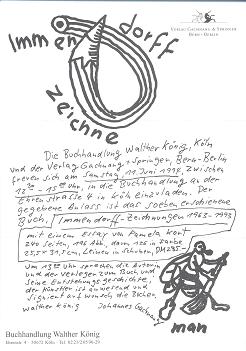 VERLAG GACHNANG & SPRINGER
BERN - BERLIN
Immen dorff
zeichne
Die Buchhandlung Walther König, Köln
und der Verlag Gachnang & Springer, Bern-Berlin
freuen sich am Samstag, 11. Juni 1994, zwischen
12 00 - 15 00 Uhr, in die Buchhandlung an der
Ehrenstraße 4 in Köln einzuladen. Der
gegebene Anlass ist das soeben erschienene
Buch, Immendorff-Zeichnungen 1963-1993
mit einem Essay von Pamela Kort
240 Seiten, 196 Abb., davon 126 in Farbe
23,5 x 31,5 cm, Leinen in Schuber, DM
Um 13 00 Uhr sprechen die Autorin
und der Verleger zum Buch und
seine Entstehungsgeschichte,
der Künstler ist anwesend und
signiert auf Wunsch die Bücher.
Walther König Johannes Gachnang
man
Buchhandlung Walther König
Ehrenstr. 4 - 50672 Köln - Tel. 0221/20596-29